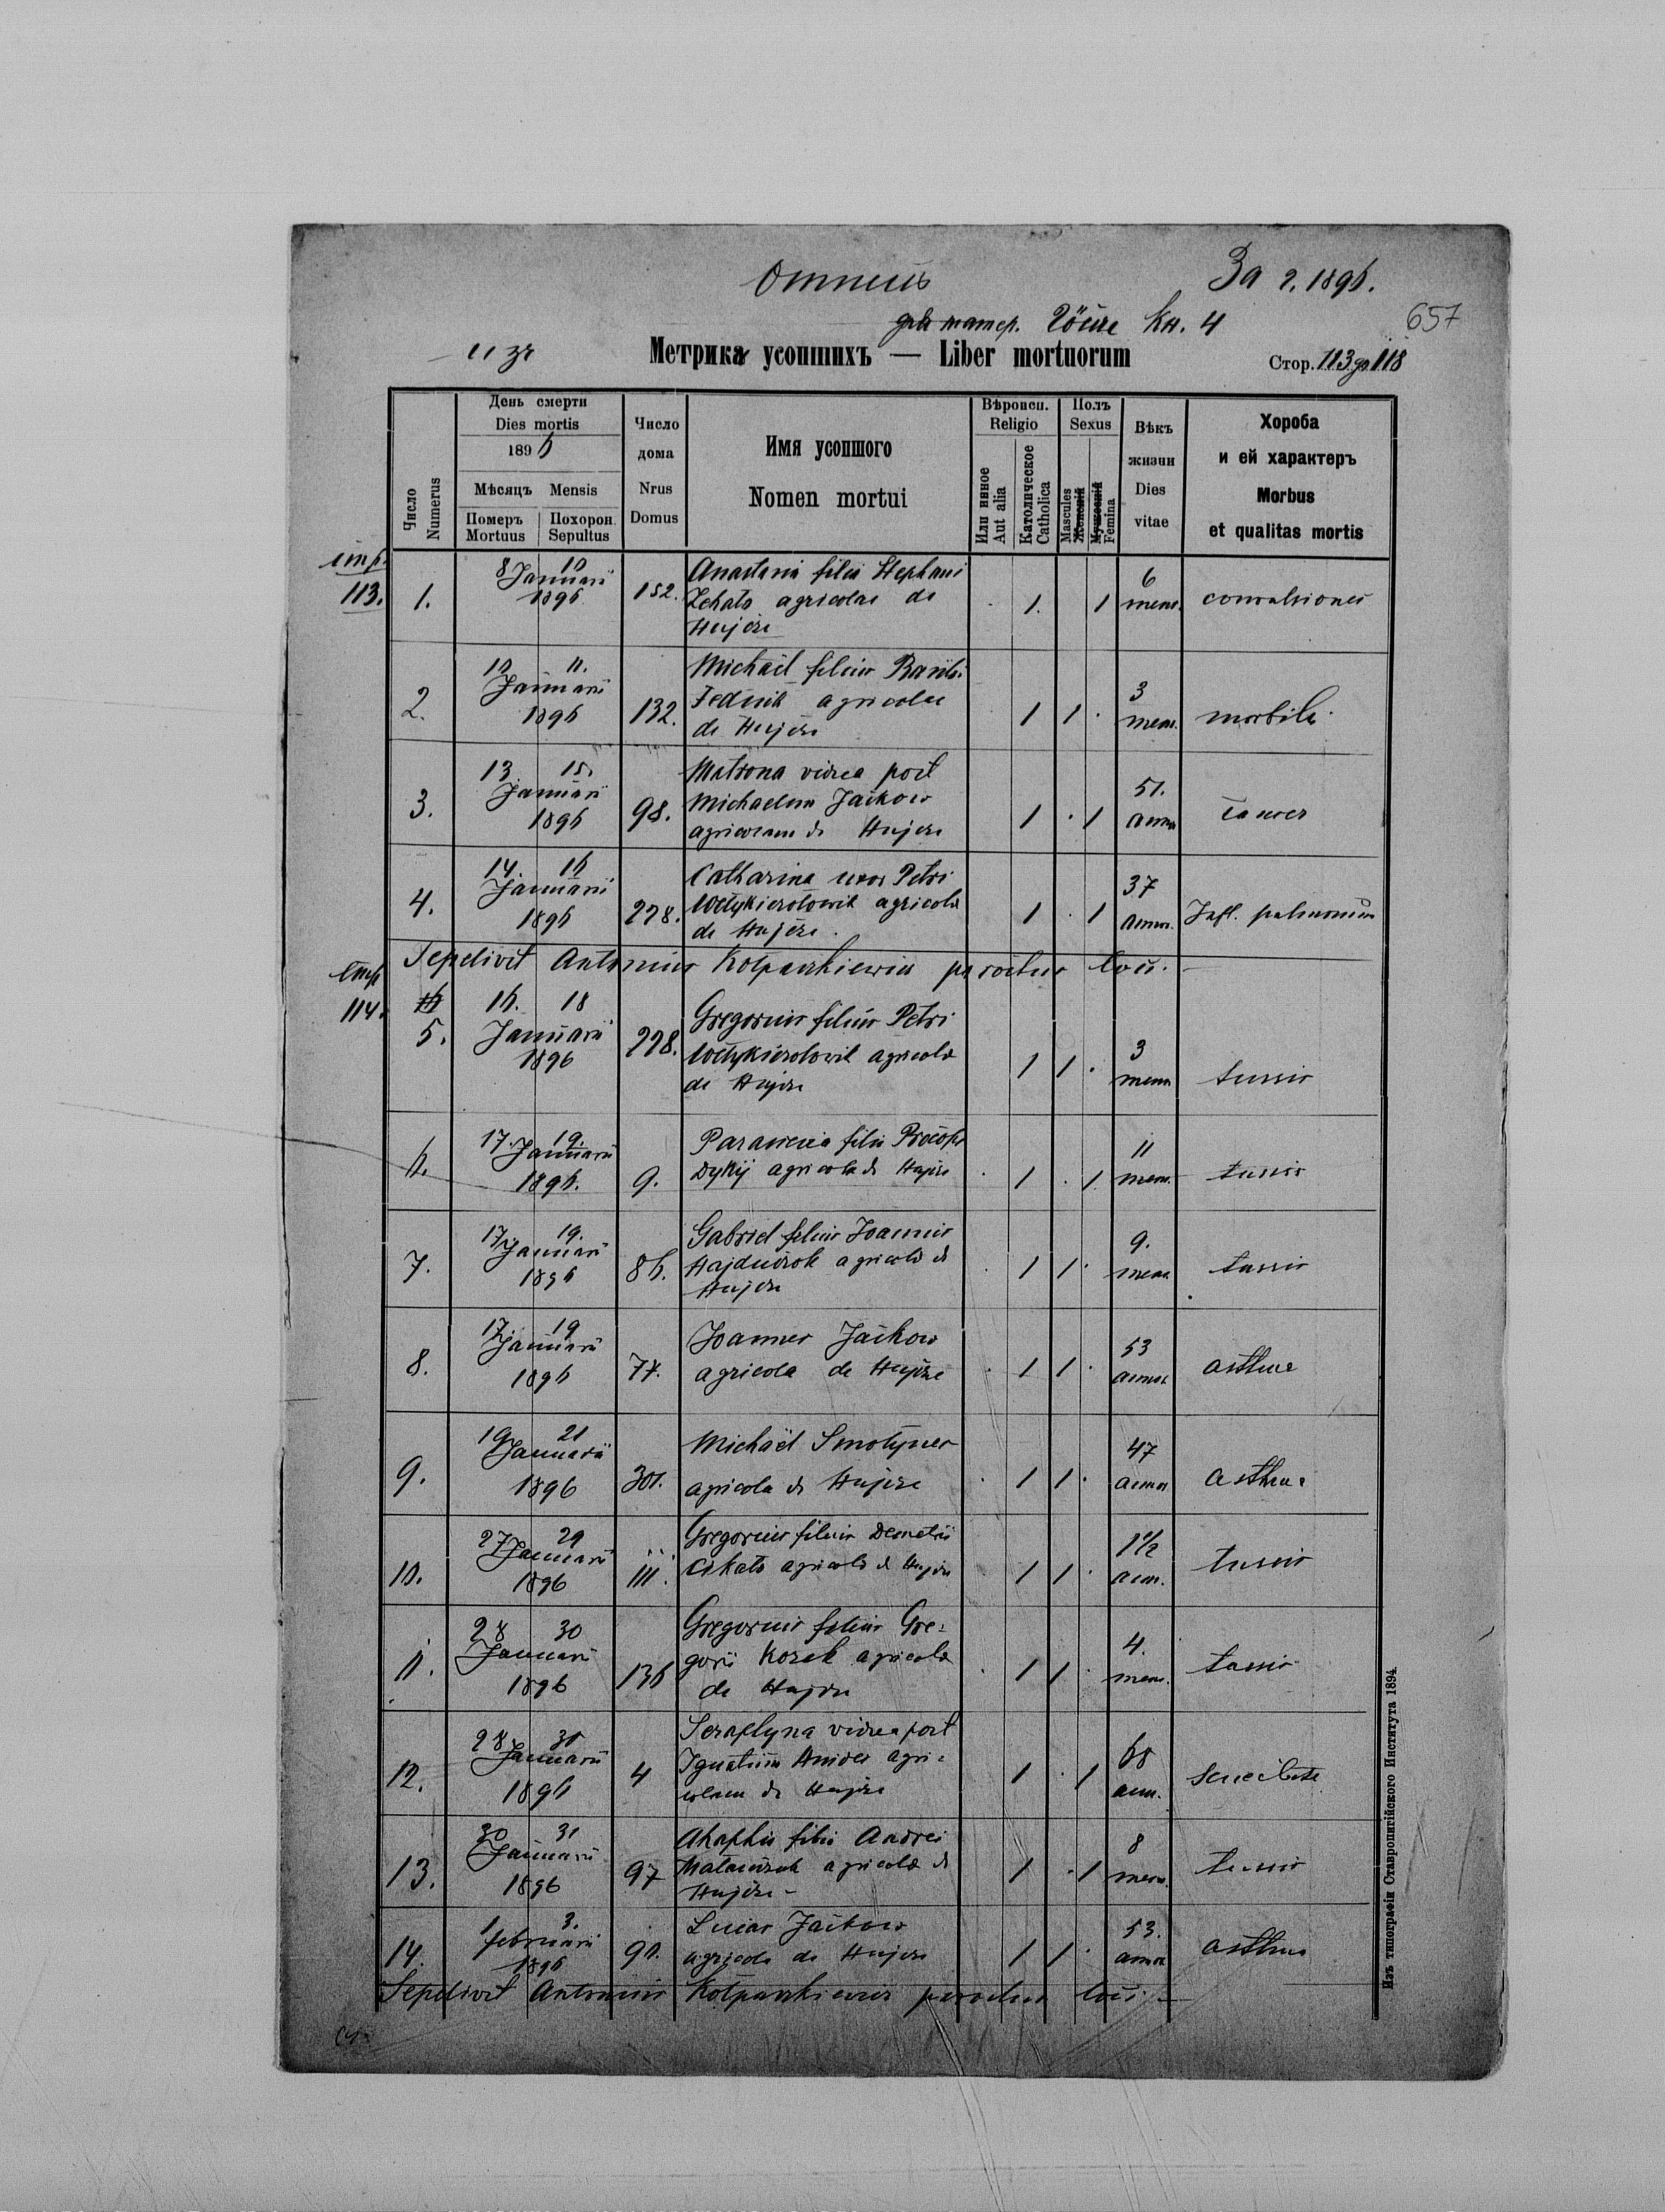 За г. 1896.
657
Кн. 4
Метрика усопшихъ — Liber mortuorum
Стор. 113 до 118
Число
Numerus
День смерти
Dies mortis
1896
Мѣсяцъ Mensis
Померъ Похорон.
Mortuus Sepultus
Число
дома
Nrus
Domus
Имя усопшого
Nomen mortui
Вѣроиси.
Religio
Или инное
Aut alia
Католическое
Catholica
Полъ
Sexus
Mascules
Женскій
Мужескій
Femina
Вѣкъ
жизни
Dies
vitae
Хороба
и ей характеръ
Morbus
et qualitas mortis
113.
1.
8 10
Januarii
1896
152.
Anastasia filia Stephani
agricolae de
Hujcze
1. 1
6
mens.
convulsiones
2.
10 11.
Januarii
1896
132.
Michaël filius Basilii
Fedniuk agricolae
de Hujcze
1 1
3
mens.
morbili
3.
13 15.
Januarii
1896
98.
Matrona vidua post
Michaelem Jackow
agricolam de Hujcze
1 1
51.
annor
cancer
4.
14. 16
Januarii
1896
228.
Catharina uxor Petri
agricolae
de Hujcze.
1 1
37
annor.
Infl. pulmonum
Sepelivit Antonius parochus loci.
114.
5.
16. 18
Januarii
1896
228.
Gregorius filius Petri
agricolae
de Hujcze
1 1
3
mens
tussis
6.
17. 19.
Januarii
1896.
9.
Parascevia filia Procopii
Dykij agricolae de Hujcze
1 1
11
mens.
tussis
7.
17 19.
Januarii
1896
86.
Gabriel filius Joannis
Hajduczok agricolae de
Hujcze
1 1
9.
mens.
tussis
8.
17 19
Januarii
1896
77.
Joannes Jackow
agricola de Hujcze
1 1
53
annor
asthma
9.
19 21
Januarii
1896
301.
Michaël Smolynec
agricola de Hujcze
1 1
47
annor
asthma
10.
27 29
Januarii
1896
111.
Gregorius filius Demetrii
agricolae de Hujcze
1 1
1 1/2
ann.
tussis
11.
28 30
Januarii
1896
136
Gregorius filius Gre-
gorii Kozak agricolae
de Hujcze
1 1
4.
mens.
tussis
12.
28 30
Januarii
1896
4
Seraphyna vidua post
Ignatium agri-
colam de Hujcze
1 1
68
ann.
senectute
13.
30 31
Januarii
1896
97
Ahaphia filia Andrei
agricolae de
Hujcze
1 1
8
mens.
tussis
14.
1 3.
februarii
1896
90.
Lucas Jackow
agricola de Hujcze
1 1
53.
annor
asthma
Sepelivit Antonius parochus loci.
Изъ типографіи Ставропигійского Института 1894.